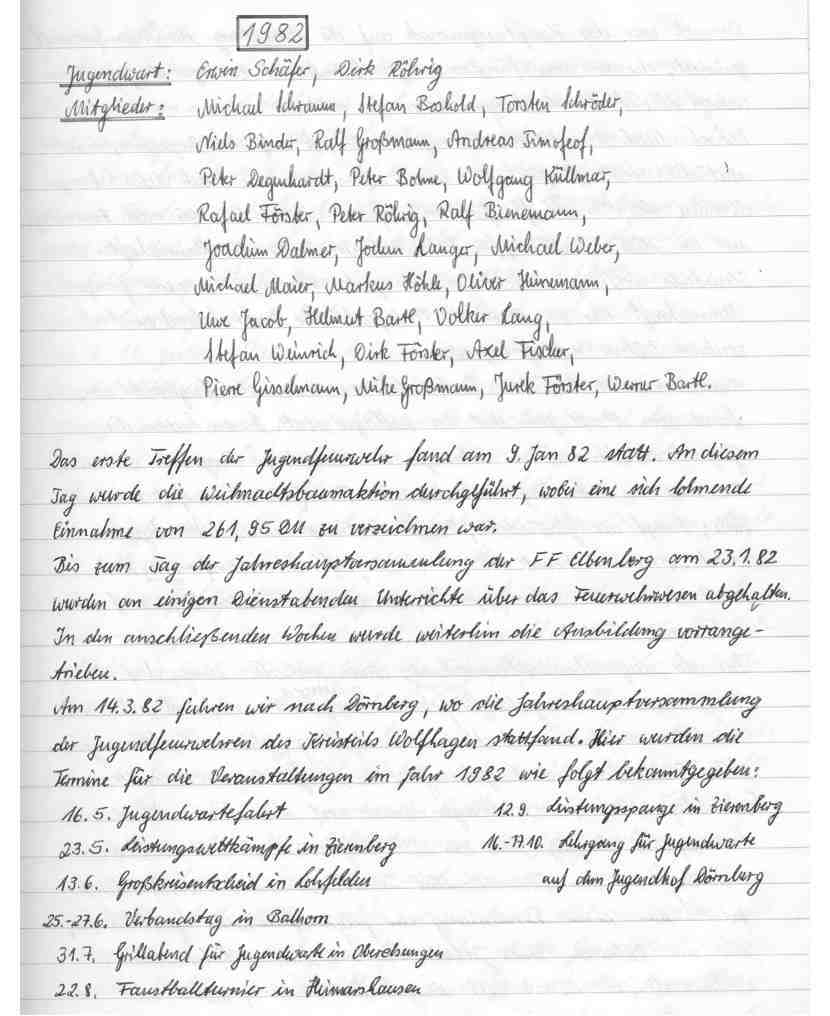 1982
Jugendwart: Erwin Schäfer, Dirk Röhrig
Mitglieder: Michael Schramm, Stefan Boshold, Torsten Schröder,
Niels Binder, Ralf Großmann, Andreas Timofeof,
Peter Degenhardt, Peter Bohne, Wolfgang Küllmar,
Rafael Förster, Peter Röhrig, Ralf Bienemann,
Joachim Dalmer, Jochen Langer, Michael Weber,
Michael Maier, Markus Höhle, Oliver Heinemann,
Uwe Jacob, Helmut Bartl, Volker Lang,
Stefan Weinrich, Dirk Förster, Axel Fischer,
Pierre Gisselmann, Mike Großmann, Jurek Förster, Werner Bartl.
Das erste Treffen der Jugendfeuerwehr fand am 9. Jan 82 statt. An diesem
Tag wurde die Weihnachtsbaumaktion durchgeführt, wobei eine sich lohnende
Einnahme von 261,95 DM zu verzeichnen war.
Bis zum Tag der Jahreshauptversammlung der FF Elbenberg am 23.1.82
wurden an einigen Dienstabenden Unterrichte über das Feuerwehrwesen abgehalten.
In den anschließenden Wochen wurde weiterhin die Ausbildung vorrange-
trieben.
Am 14.3.82 fuhren wir nach Dörnberg, wo die Jahreshauptversammlung
der Jugendfeuerwehren des Kreisteils Wolfhagen stattfand. Hier wurden die
Termine für die Veranstaltungen im Jahr 1982 wie folgt bekanntgegeben:
16.5. Jugendwartefahrt 12.9. Leistungsspange in Zierenberg
23.5. Leistungswettkämpfe in Zierenberg 16.-17.10. Lehrgang für Jugendwarte
13.6. Großkreisentscheid in Lohfelden auf dem Jugendhof Dörnberg
25.-27.6. Verbandstag in Balhorn
31.7. Grillabend für Jugendwarte in Oberelsungen
22.8. Faustballturnier in Heimarshausen